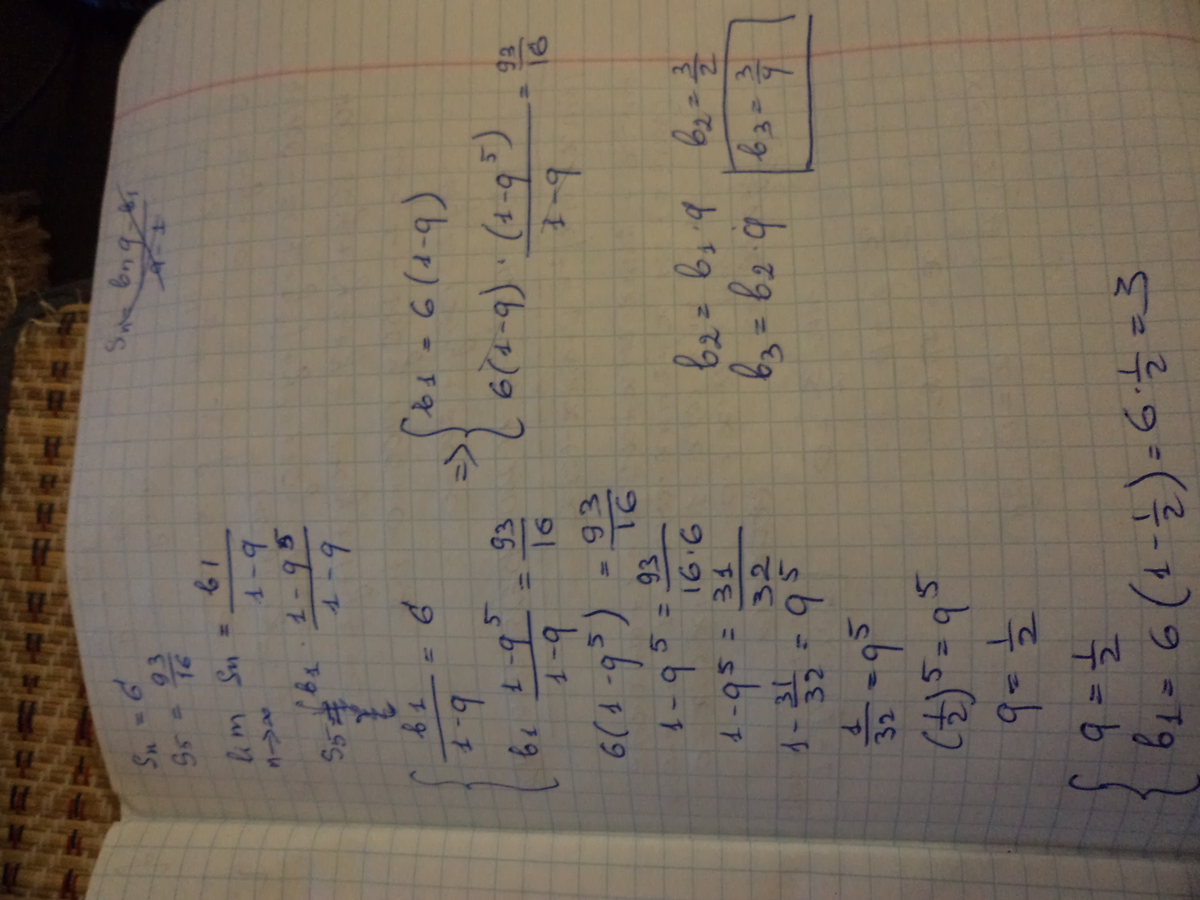 Sn = bn q - b1 / q - 1
Sn = 6
S5 = 93/16
lim n->∞ Sn = b1 / 1-q
S5 = b1 · 1-q^5 / 1-q
{ b1 / 1-q = 6
{ b1 1-q^5 / 1-q = 93/16
=> { b1 = 6(1-q)
{ 6(1-q) · (1-q^5) / 1-q = 93/16
6(1-q^5) = 93/16
1-q^5 = 93 / 16·6
1-q^5 = 31/32
1 - 31/32 = q^5
1/32 = q^5
(1/2)^5 = q^5
q = 1/2
{ q = 1/2
{ b1 = 6(1 - 1/2) = 6 · 1/2 = 3
b2 = b1 · q   b2 = 3/2
b3 = b2 · q   b3 = 3/4